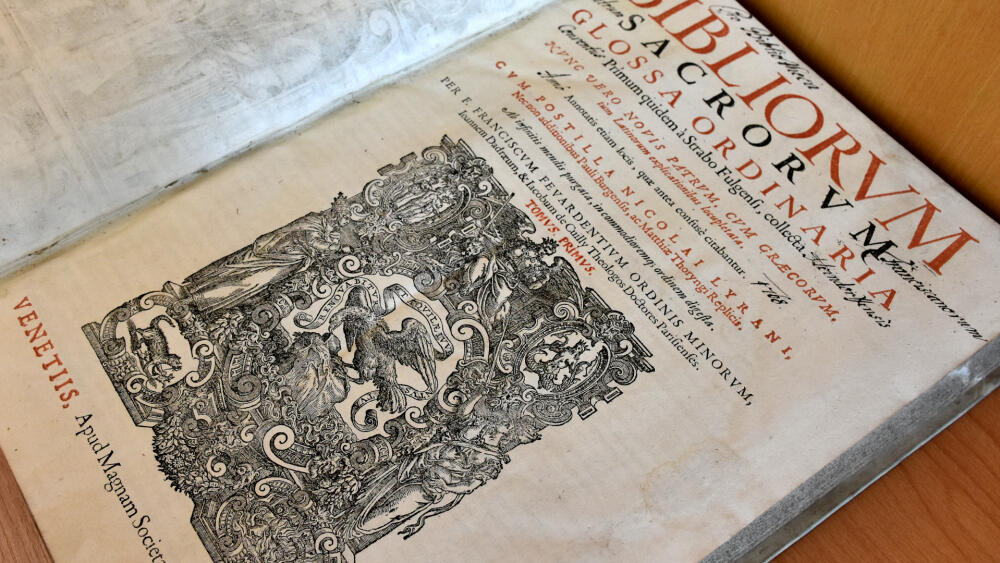 BIBLIORVM
SACRORVM
GLOSSA ORDINARIA
Primum quidem à Strabo Fulgensi, collecta:
NVNC VERO NOVIS PATRVM, CVM GRÆCORVM,
tùm Latinorum explicationibus locupletata.
Annotatis etiam locis quæ antea confusè citabantur.
CVM POSTILLA NICOLAI LYRANI,
Necnon additionibus Pauli Burgensis, ac Matthiæ Thoryngi Replicis,
Ab infinitis mendis purgatis, in commodioremq; ordinem digestis.
PER F. FRANCISCVM FEVARDENTIVM ORDINIS MINORVM,
Ioannem Dadræum, & Iacobum de Cuilly Theologos Doctores Parisienses.
TOMVS PRIMVS.
VENETIIS,
Apud Magnam Societa